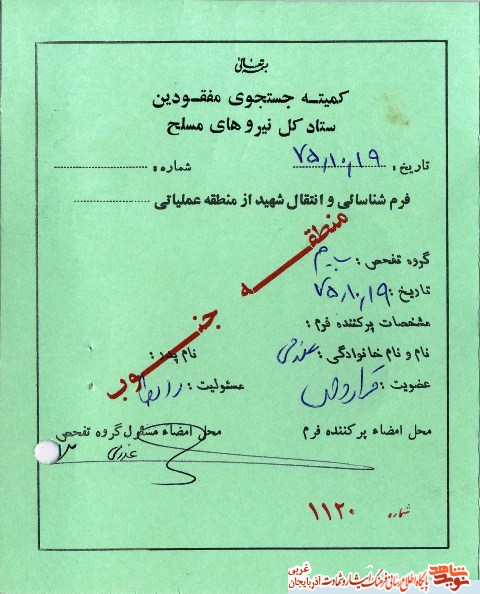 بسمه تعالی
کمیته جستجوی مفقودین
ستاد کل نیروهای مسلح
تاریخ: ۷۵/۱۰/۱۹ شماره:
فرم شناسائی و انتقال شهید از منطقه عملیاتی
منطقه جنوب
گروه تفحص:
تاریخ: ۷۵/۱۰/۱۹
مشخصات پرکننده فرم:
نام و نام خانوادگی: نام پدر:
عضویت: مسئولیت:
محل امضاء پرکننده فرم محل امضاء مسئول گروه تفحص
شماره ۱۱۲۰
نوید شاهد
پایگاه اطلاع رسانی فرهنگ ایثار و شهادت آذربایجان غربی